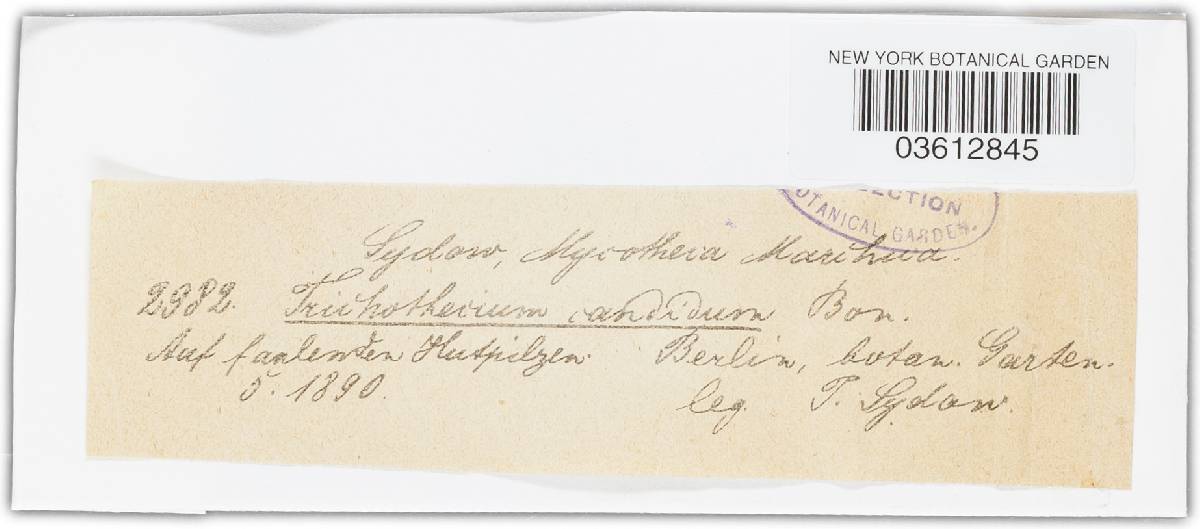 NEW YORK BOTANICAL GARDEN
03612845
ECTION
OTANICAL GARDEN.
Sydow, Mycotheca Marchica.
2982. Trichothecium candidum Bon.
Auf faulenden Hutpilzen. Berlin, botan. Garten.
5. 1890.
leg. P. Sydow.